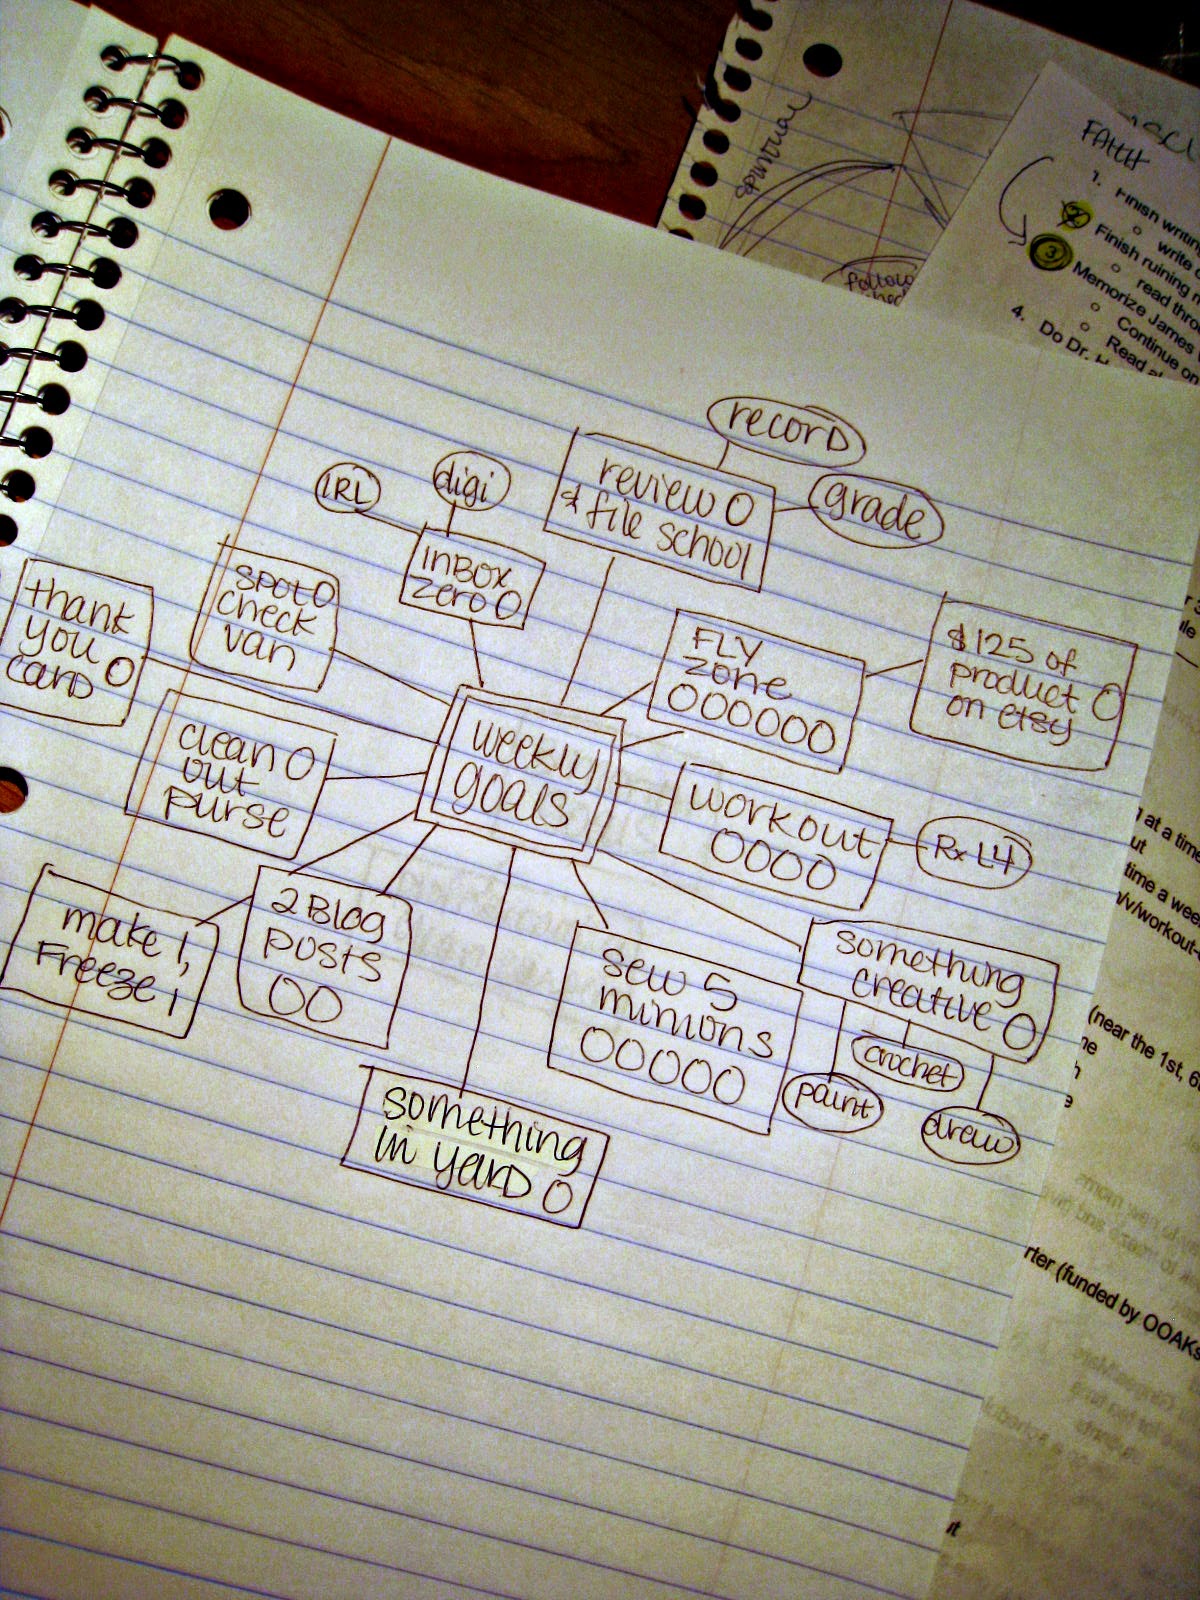 spiritual
FAITH
1. Finish writing
write
2
Finish ruining
read
3
Memorize James
Continue on
4. Do Dr.
Read
record
grade
review O
& file school
IRL
digi
INBOX
zero O
spot O
check
van
thank
you O
card
FLY
zone
OOOOOO
$125 of
product O
on etsy
weekly
goals
clean O
out
purse
workout
OOOO
Rx L4
make 1,
Freeze 1
2 Blog
posts
OO
sew 5
minions
OOOOO
something
creative O
crochet
paint
draw
something
in yard O
at a time
time a week
/v/workout-
(near the 1st,
rter (funded by OOAKs